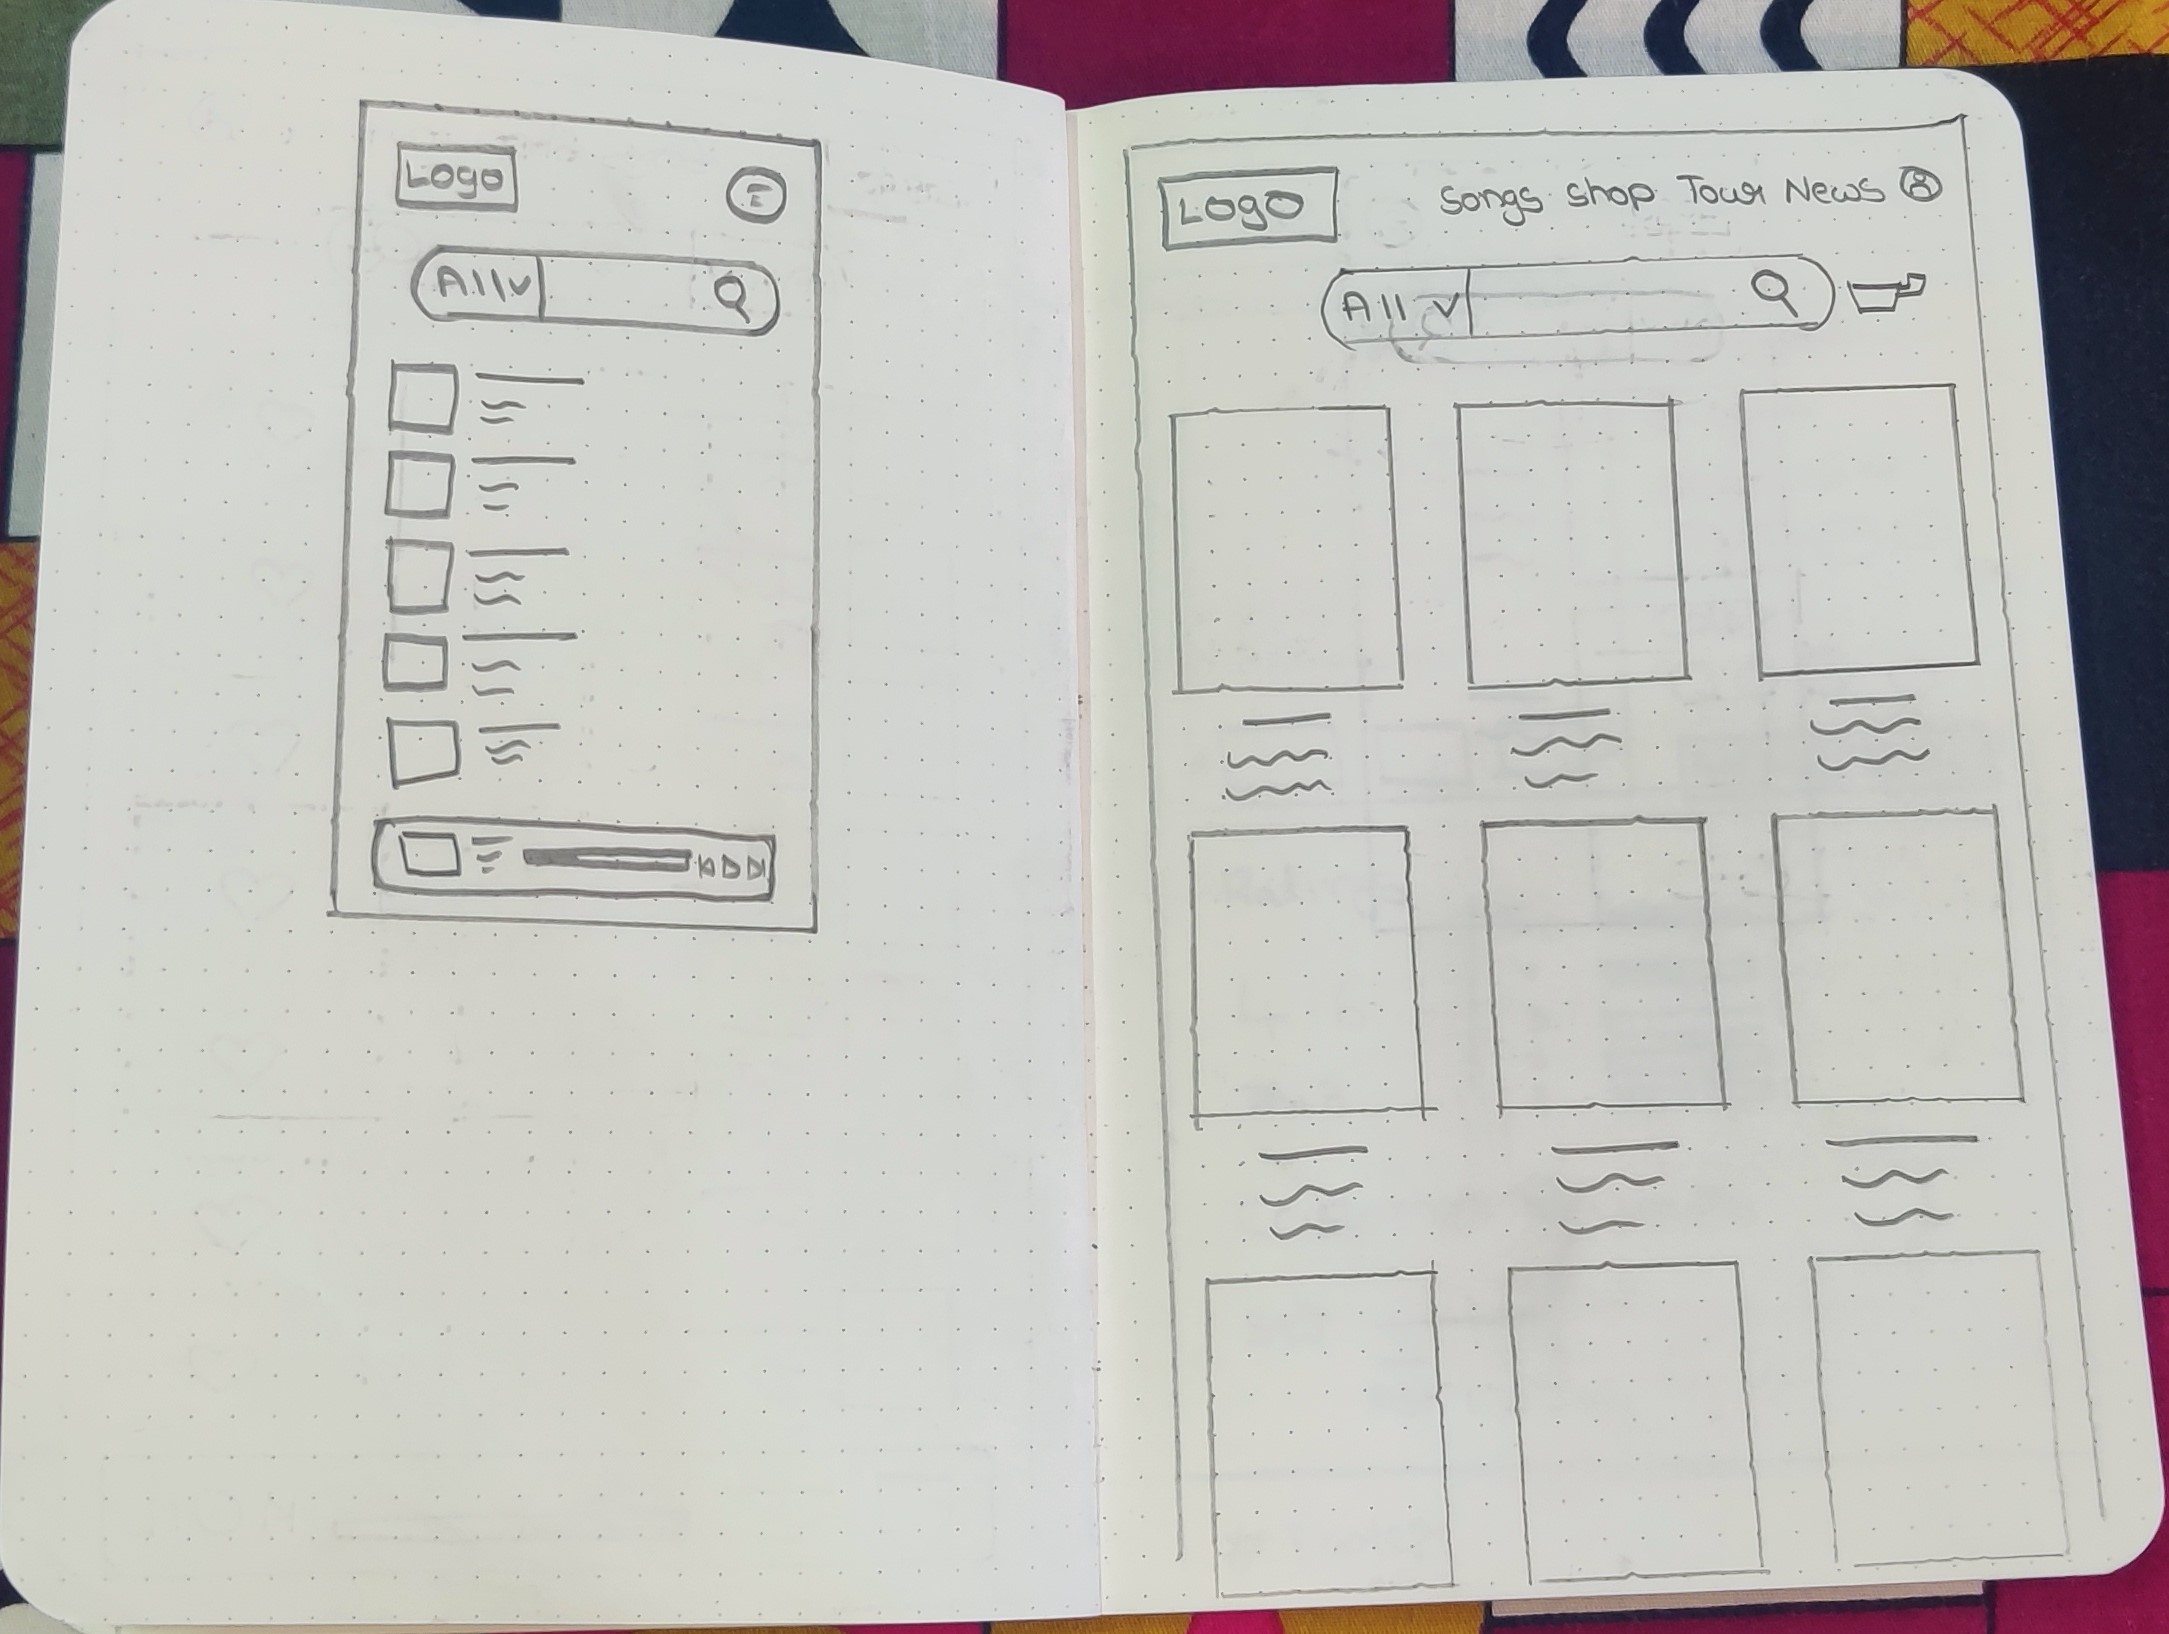 Logo
All
Logo
Songs Shop Tour News
All